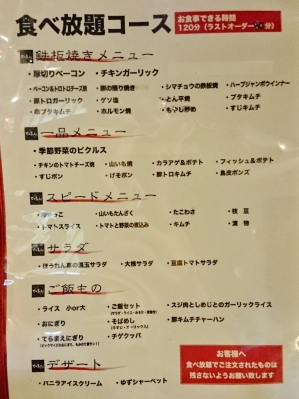 食べ放題コース
お食事できる時間
120分(ラストオーダー 分)
鉄板焼きメニュー
・厚切りベーコン ・チキンガーリック
・ベーコン&トロトロチーズ焼 ・豚の照り焼き ・シマチョウの鉄板焼 ・ハーブジャンボウインナー
・豚トロガーリック ・ゲソ塩 ・とん平焼 ・ブタキムチ
・ホルモン焼 ・もやし炒め ・すじキムチ
一品メニュー
・季節野菜のピクルス
・チキンのトマトチーズ焼 ・山いも焼 ・カラアゲ&ポテト ・フィッシュ&ポテト
・すじポン ・げそポン ・豚トロキムチ ・鳥皮ポンズ
スピードメニュー
・山いもたんざく ・たこわさ ・枝豆
・トマトスライス ・トマトと野菜の煮込み ・キムチ ・漬物
サラダ
・ほうれん草の温玉サラダ ・大根サラダ ・豆腐トマトサラダ
ご飯もの
・ライス 小or大 ・ご飯セット ・スジ肉としめじとのガーリックライス
・おにぎり ・そばめし ・豚キムチチャーハン
・てらまえにぎり ・チゲクッパ
デザート
・バニラアイスクリーム ・ゆずシャーベット
お客様へ
食べ放題でご注文されたものは
残さないようお願い致します